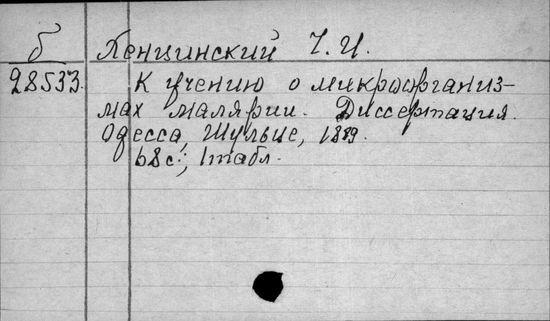 б Хенцинский Ч. И.
28533. К учению о микроорганиз-
мах малярии. Диссертация.
Одесса, Шульце, 1889.
68 с.; 1 табл.